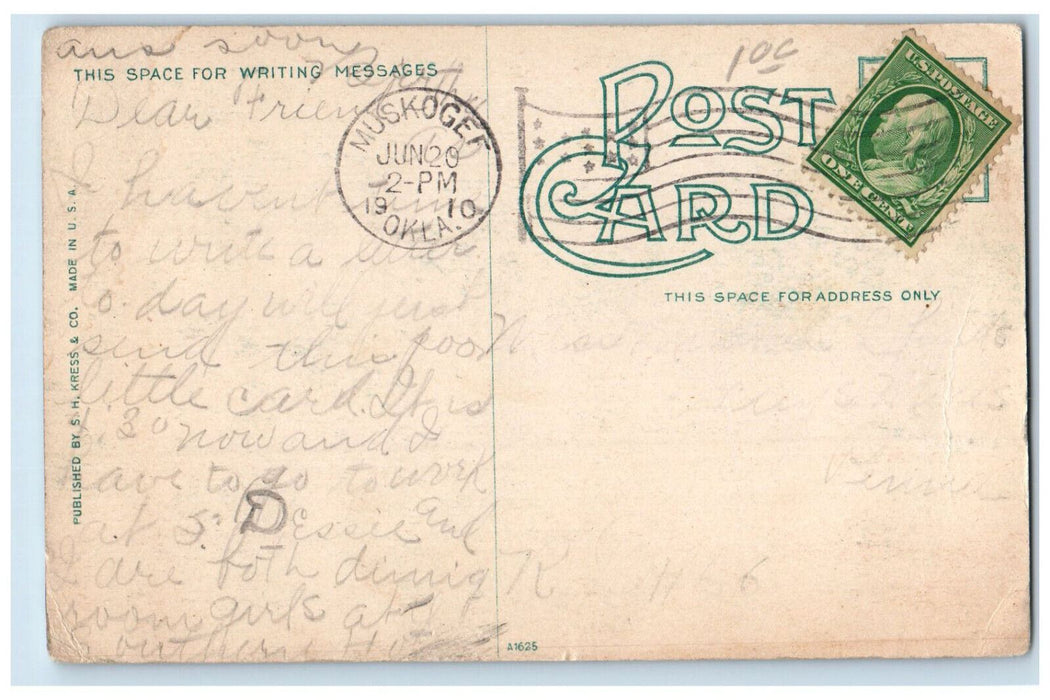 ans soon
THIS SPACE FOR WRITING MESSAGES
Dear Friend
I havent time
to write a letter
to day will just
send this poor
little card. It is
30 now and I
have to go to work
at 5. Essie and
I are both dining
room girls at
Southern
D
PUBLISHED BY S. H. KRESS & CO. MADE IN U. S. A.
MUSKOGEE
JUN 20
2-PM
1910
OKLA.
10c
POST
CARD
U.S. POSTAGE
ONE CENT
THIS SPACE FOR ADDRESS ONLY
Tenn
R
# 6
A1625